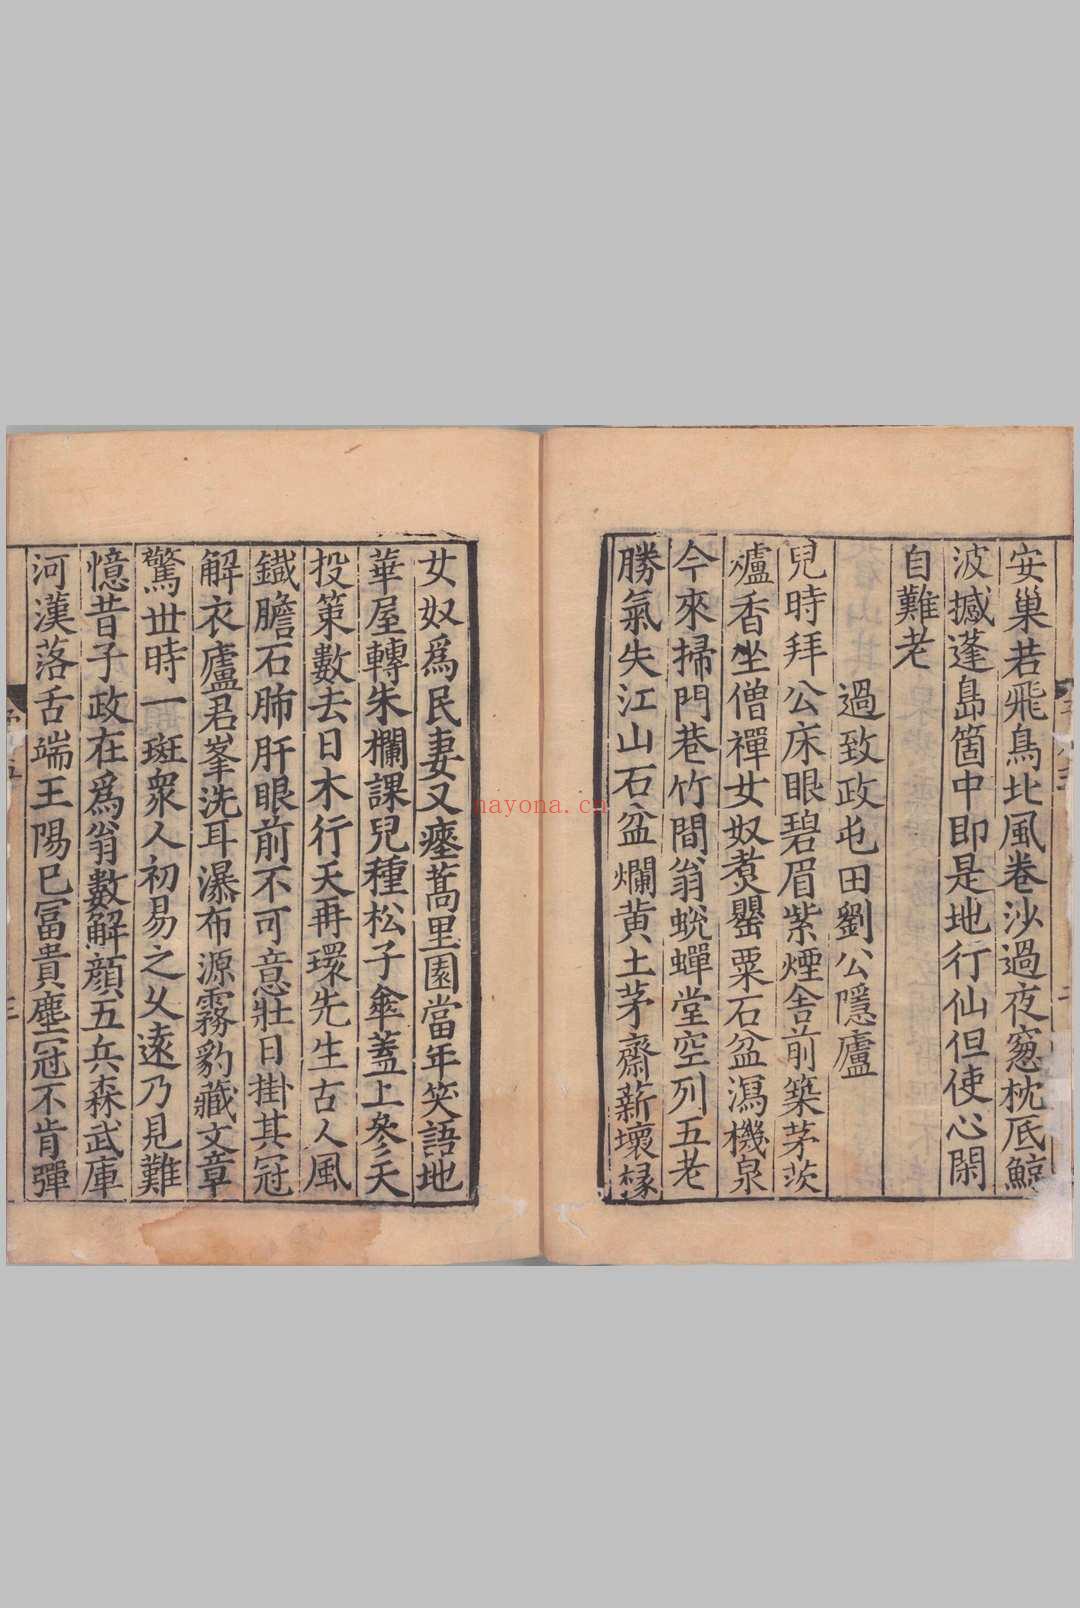 安巢若飛鳥北風卷沙過夜窻枕底鯨
波撼蓬島箇中即是地行仙但使心閑
自難老
過致政屯田劉公隱廬
兒時拜公床眼碧眉紫煙舎前築茅茨
爐香坐僧禪女奴煑罌粟石盆瀉機泉
今來掃門巷竹間翁蛻蟬堂空列五老
勝氣失江山石盆爛黄土茅齋薪壞椽
女奴爲民妻又瘞蒿里園當年笑語地
華屋轉朱欄課兒種松子傘蓋上參天
投策數去日木行天再環先生古人風
鐵膽石肺肝眼前不可意壯日掛其冠
解衣廬君峯洗耳瀑布源霧豹藏文章
驚世時一斑衆人初易之乆遠乃見難
憶昔子政在爲翁數解顔五兵森武庫
河漢落舌端王陽已冨貴塵冠不肯彈
nayona.cn